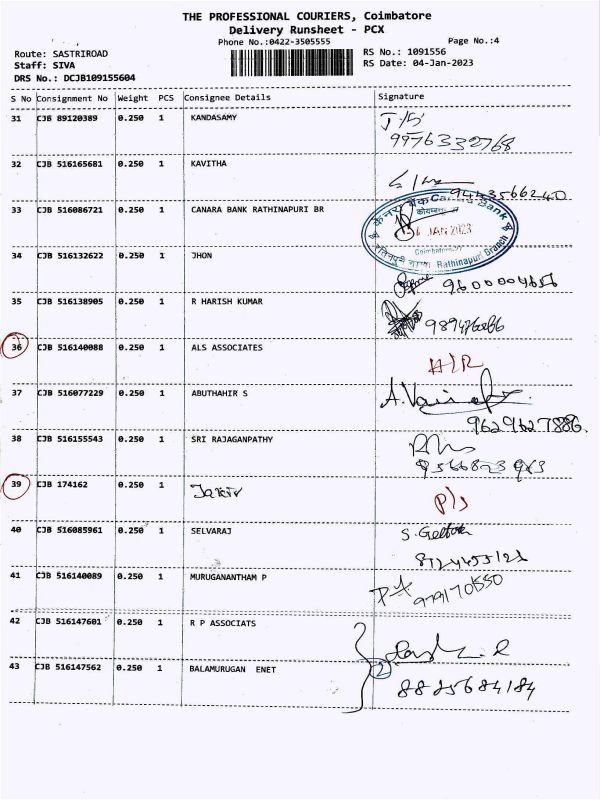 THE PROFESSIONAL COURIERS, Coimbatore
Delivery Runsheet - PCX
Phone No.:0422-3505555
Page No.:4
Route: SASTRIROAD
Staff: SIVA
DRS No.: DCJB109155604
RS No.: 1091556
RS Date: 04-Jan-2023
S No Consignment No Weight PCS Consignee Details Signature
31 CJB 89120389 0.250 1 KANDASAMY
9976332768
32 CJB 516165681 0.250 1 KAVITHA
9443566240
33 CJB 516086721 0.250 1 CANARA BANK RATHINAPURI BR
केनरा बैंक Canara Bank
JAN 2023
Coimbatore
Rathinapuri Branch
34 CJB 516132622 0.250 1 JHON
35 CJB 516138905 0.250 1 R HARISH KUMAR
36 CJB 516140088 0.250 1 ALS ASSOCIATES
37 CJB 516077229 0.250 1 ABUTHAHIR S
9629627886.
38 CJB 516155543 0.250 1 SRI RAJAGANPATHY
39 CJB 174162 0.250 1
40 CJB 516085961 0.250 1 SELVARAJ
41 CJB 516140089 0.250 1 MURUGANANTHAM P
42 CJB 516147601 0.250 1 R P ASSOCIATS
43 CJB 516147562 0.250 1 BALAMURUGAN ENET
2
8825684184